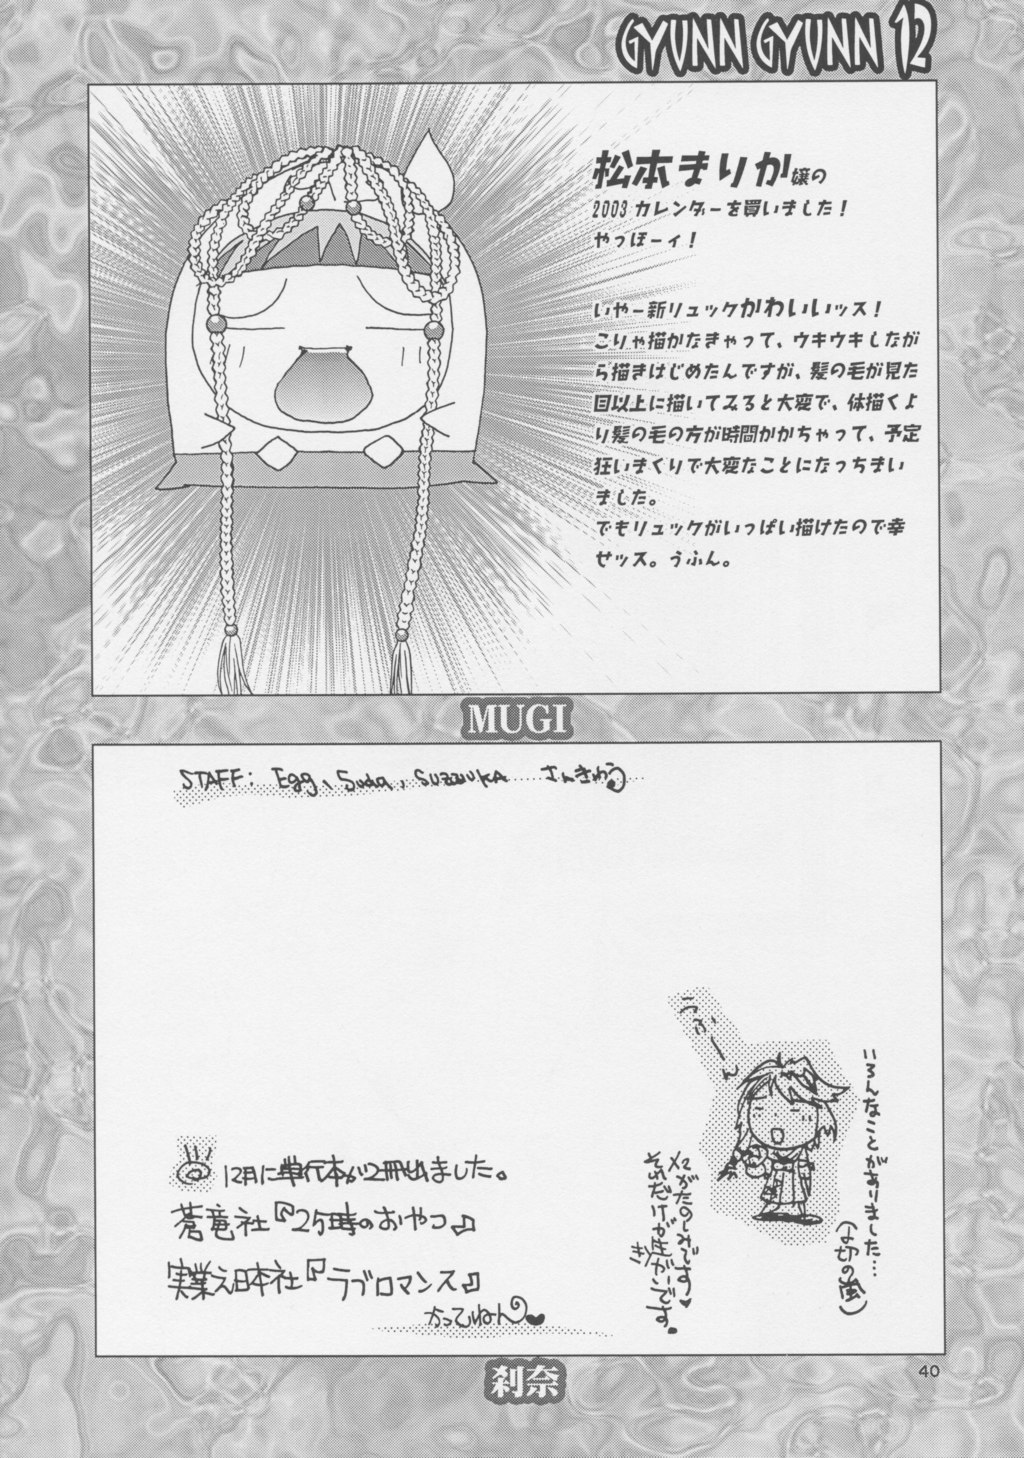 GYUNN GYUNN 12
松本まりか嬢の
2003 カレンダーを買いました！
やっほーィ！
いやー新リュックかわいいッス！
こりゃ描かなきゃって、ウキウキしなが
ら描きはじめたんですが、髪の毛が見た
目以上に描いてみると大変で、体描くよ
り髪の毛の方が時間かかちゃって、予定
狂いまくりで大変なことになっちまい
ました。
でもリュックがいっぱい描けたので幸
せッス。うふん。
MUGI
STAFF: Egg、Suda, SUZUUKA さんきゅう
いろんなことがありました…
(〆切の嵐)
がたのしみです♥
それだけが生きがいです。
12月に単行本が2冊出ました。
蒼竜社『25時のおやつ』
実業之日本社『ラブロマンス』
かってねん♥
刹奈
40